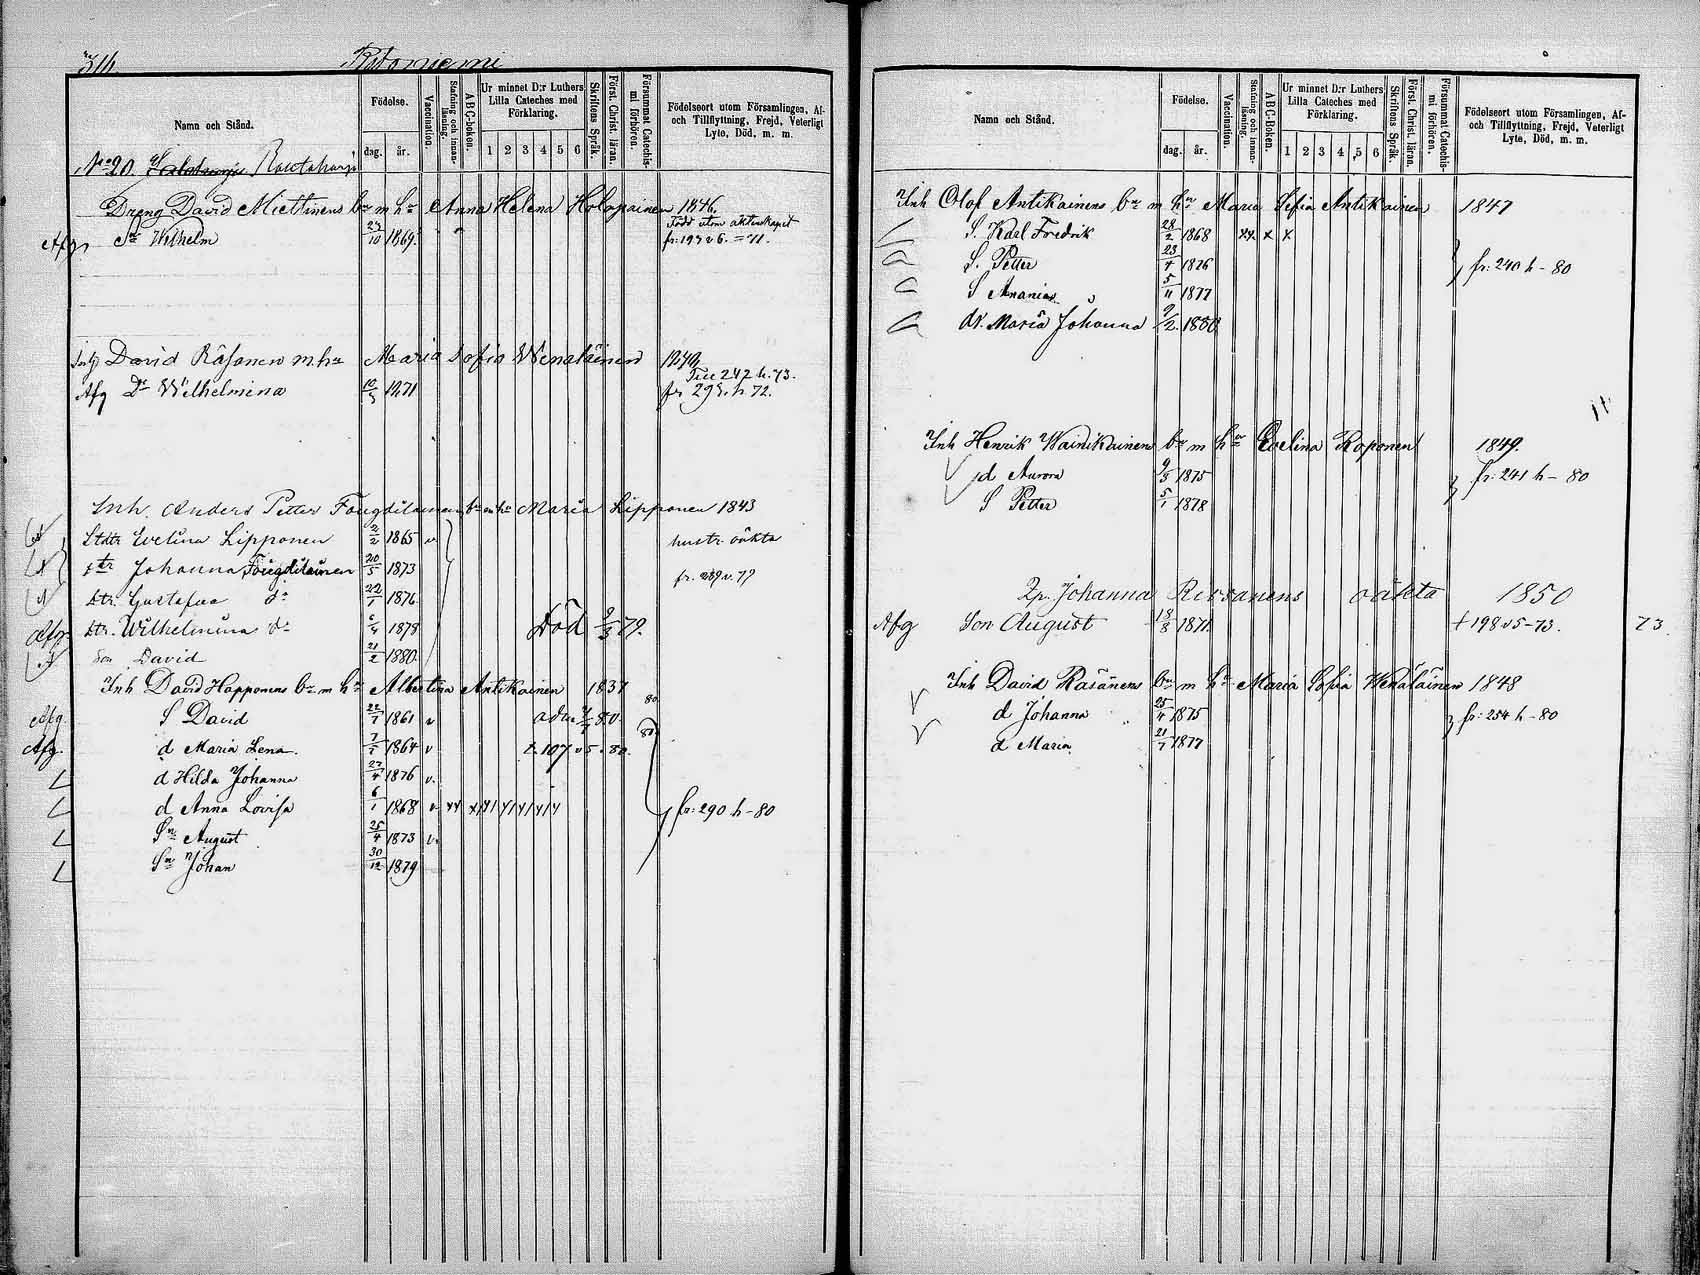 314.
Namn och Stånd.
Födelse.
dag. år.
Vaccination.
Stafning och innanläsning.
ABC-boken.
Ur minnet D:r Luthers Lilla Cateches med Förklaring.
1 2 3 4 5 6
Skriftens Språk.
Först. Christ. läran.
Försummat Catechismi förhören.
Födelseort utom Församlingen, Af- och Tillflyttning, Frejd, Veterligt Lyte, Död, m. m.
No 20. Rautaharju
Dreng David Miettinens bn m hu Anna Helena Holopainen 1846
Född utom äktenskapet
Afg Sn Wilhelm 27/10 1869. fr: 195 v 6. = 71.
Inh David Räsänen m. hu Maria Sofia Wenäläinen
Till 242 h. 73.
Afg Dr Wilhelmina 1871 fr 295. h 72.
Inh. Anders Petter Fougdilainens bn m hu Maria Lipponen 1843
Dttr Evelina Lipponen 2/2 1865 v hustr. oäkta
Dtr Johanna Fougdilainen 20/5 1873 fr. 289 v. 79
Dtr. Gustafva do 22/1 1876
Afg. Dtr. Wilhelmina do 6/4 1878 Död 2/3 79.
Son David 21/2 1880.
Inh David Happonens bn m hu Albertina Antikainen 1837
Afg S David 22/7 1861 v 80.
Afg. d Maria Lena. 1864 v t. 107 v 5. 80. 80
d Hilda Johanna 27/4 1876 v.
d Anna Lovisa 6/1 1868 v fr: 290 h - 80
Sn August 25/4 1873 v.
Sn Johan 30/12 1879
Namn och Stånd.
Födelse.
dag. år.
Vaccination.
Stafning och innanläsning.
ABC-Boken.
Ur minnet D:r Luthers Lilla Cateches med Förklaring.
1 2 3 4 5 6
Skriftens Språk.
Först. Christ. läran.
Försummat Catechismi förhören.
Födelseort utom Församlingen, Af- och Tillflyttning, Frejd, Veterligt Lyte, Död, m. m.
Inh Olof Antikainens bn m hu Maria Sofia Antikainen 1847
S. Karl Fredrik 28/2 1868 x x
S. Petter 23/4 1876 fr: 240 h - 80
S Ananias 5/11 1877
dr. Maria Johanna 9/2 1880
Inh Henrik Wainikainens bn m hu Evelina Roponen 1849.
d Aurora 9/3 1875 fr: 241 h - 80
S Petter 5/1 1878
Johanna oäkta 1850
Afg Son August 18/8 1871. t 198 v 5 - 73. 73.
Inh David Räsänens bn m hu Maria Sofia Wenäläinen 1848
d Johanna 25/4 1875 fr: 254 h - 80
d Maria 21/7 1877